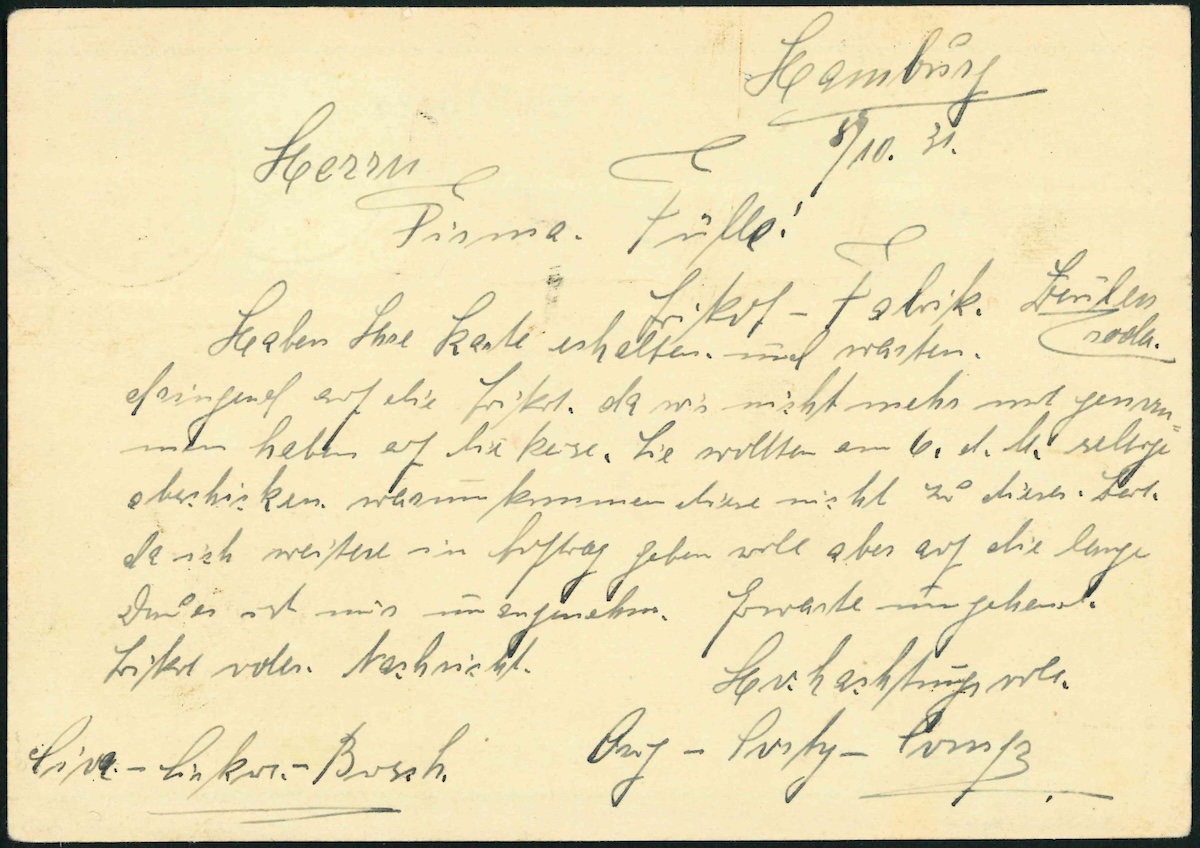 Hamburg
8/10. 31.
Herrn
Firma. Fülle!
Trikot - Fabrik. Zeulen
roda.
Haben Ihre Karte erhalten. und warten.
dringend auf die Trikot. da wir nicht mehr mit genom=
men haben auf die Reise. Sie wollten am 6. d. M. selbige
abschicken. warum kommen diese nicht zu dieser. Zeit.
da ich weitere in Auftrag geben will aber auf die lange
Dauer ist mir unangenehm. Erwarte umgehend.
Trikot oder. Nachricht.
Hochachtungsvoll.
Cirkus - Busch.